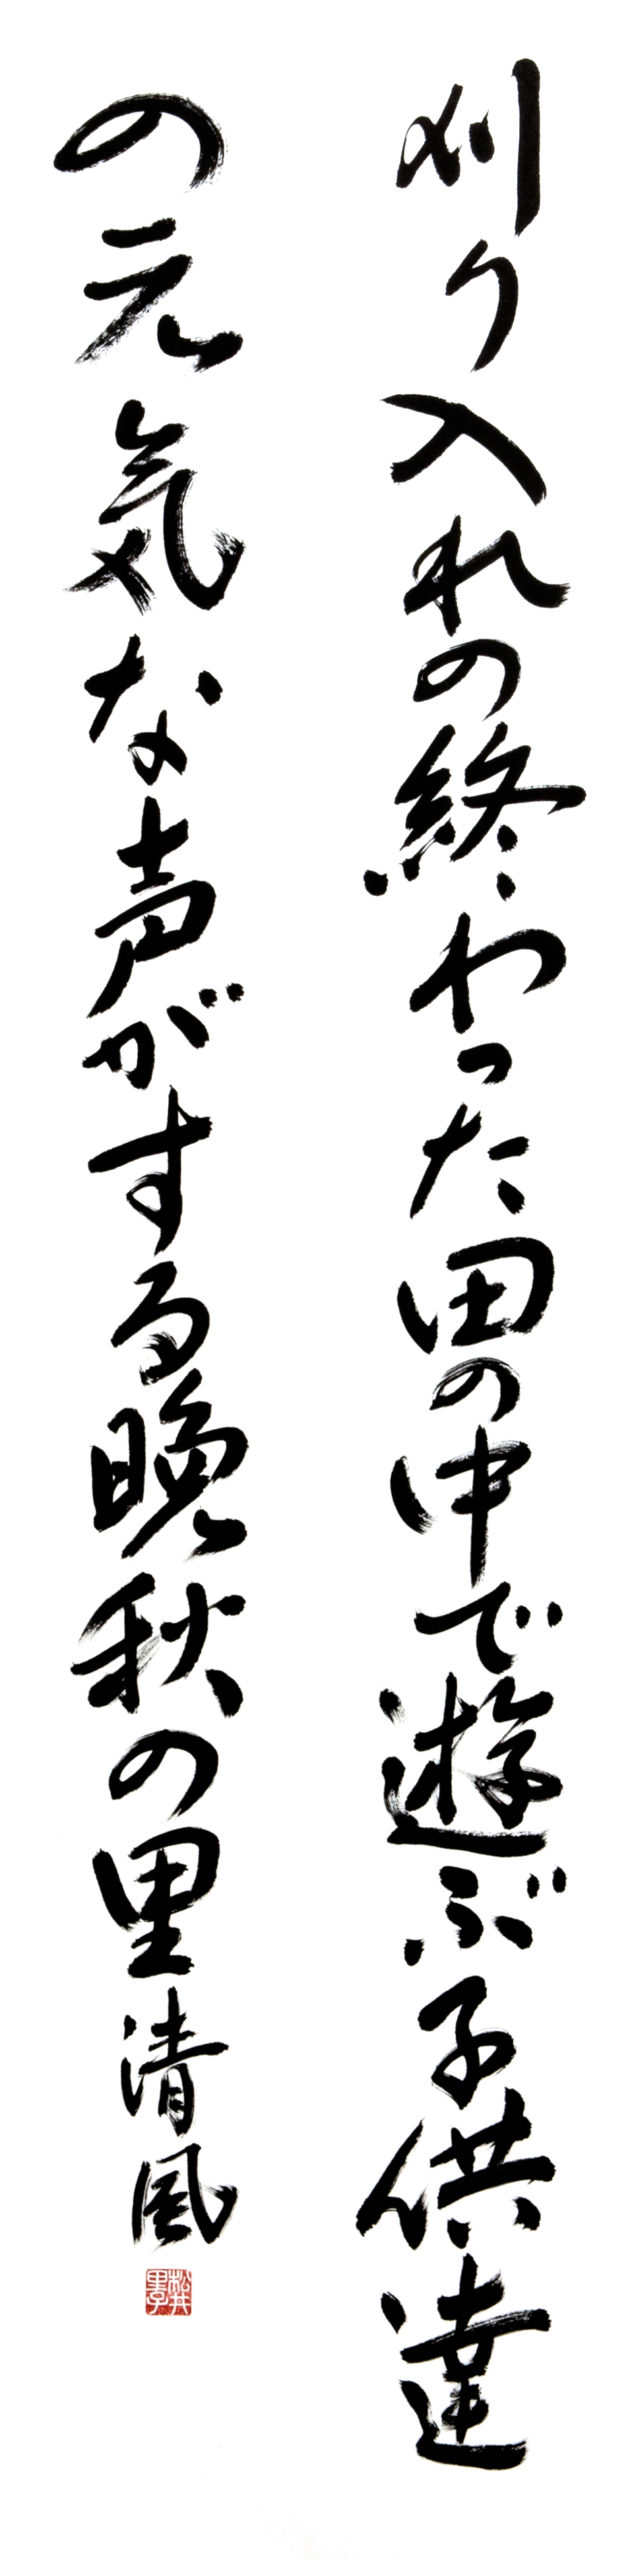 刈り入れの終わった田の中で遊ぶ子供達
の元気な声がする晩秋の里 清風